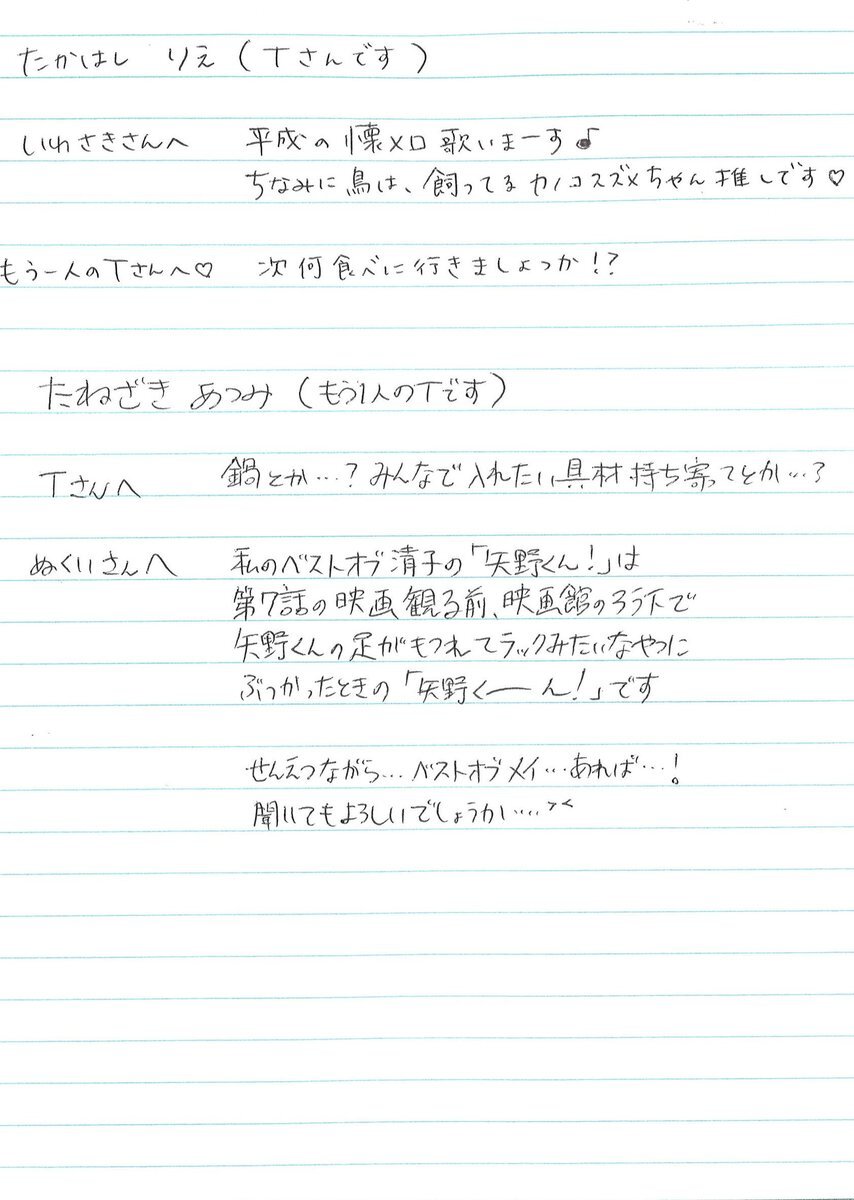 たかはし りえ (Tさんです)
いわさきさんへ 平成の懐メロ歌いまーす♪
ちなみに鳥は、飼ってるカノコスズメちゃん推しです♡
もう一人のTさんへ♡ 次何食べに行きましょっか!?
たねざき あつみ (もう1人のTです)
Tさんへ 鍋とか…?みんなで入れたい具材持ち寄ってとか…?
ぬくいさんへ 私のベストオブ清子の「矢野くん!」は
第7話の映画観る前、映画館のろう下で
矢野くんの足がもつれてラックみたいなやつに
ぶつかったときの「矢野くーん!」です
せんえつながら…ベストオブメイ…あれば…!
聞いてもよろしいでしょうか….><